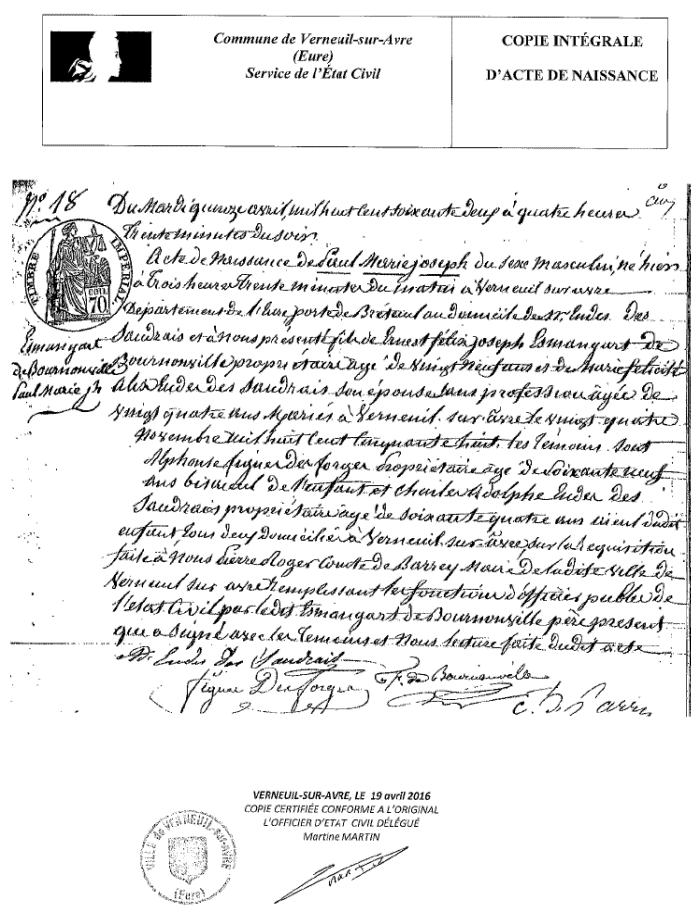 Commune de Verneuil-sur-Avre
(Eure)
Service de l'État Civil
COPIE INTÉGRALE
D'ACTE DE NAISSANCE
N° 18
Du Mardi quinze avril, mil huit cent soixante deux à quatre heures
trente minutes du soir
Acte de Naissance de Paul Marie joseph du sexe masculin, né hier
à trois heures trente minutes du matin à Verneuil sur avre
TIMBRE IMPÉRIAL
70
Département de l'Eure porte de Breteuil au domicile de Mr. Eudes des
Esmangart
de Bournonville
Paul Marie jh
Saudrais et à Nous présenté fils de Ernest félix joseph Esmangart de
Bournonville propriétaire agé de vingt neuf ans et de Marie félicité
Eudes des Saudrais son épouse sans profession agée de
vingt quatre ans Mariés à Verneuil sur avre le vingt quatre
Novembre mil huit cent cinquante huit. les temoins sont
Alphonse des forges Propriétaire agé de soixante neuf
ans bisaieul de l'enfant et charles Adolphe Eudes des
Saudrais propriétaire agé de soixante quatre ans aieul dudit
enfant tous deux domiciliés à Verneuil sur avre sur la requisition
faite à Nous Pierre Roger Comte de Barrey Maire de ladite ville de
Verneuil sur avre remplissant les fonctions d'officier public de
l'état Civil par ledit Esmangart de Bournonville père present
qui a signé avec les temoins et Nous lecture faite dudit acte
Eudes Des Saudrais
Des forges
de Bournonville
VERNEUIL-SUR-AVRE, LE 19 avril 2016
COPIE CERTIFIÉE CONFORME A L'ORIGINAL
L'OFFICIER D'ETAT CIVIL DÉLÉGUÉ
Martine MARTIN
VILLE de VERNEUIL-sur-AVRE
(Eure)